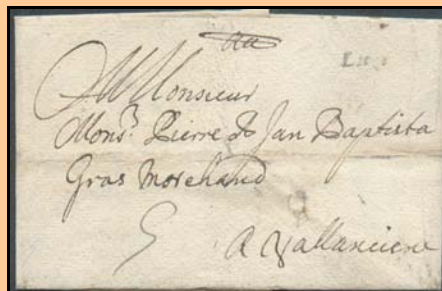 A Monsieur
Monsr. Pierre & Jan Baptista
Gras Marchand
5
A Vallanciene